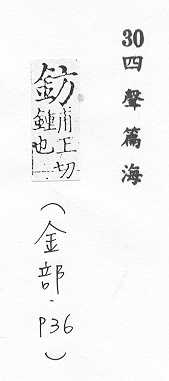 30四聲篇海
鈁
甫王切
鍾也
(金部.P36)